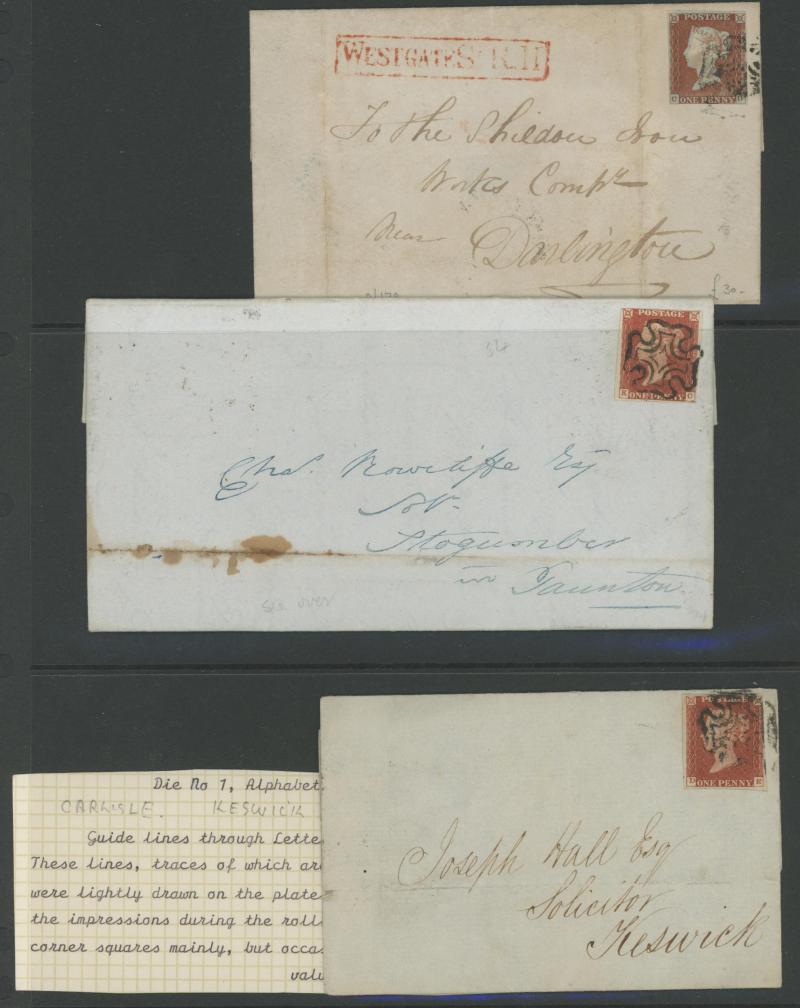 WESTGATE St R.H
POSTAGE
C D
ONE PENNY
To the Shildon Iron
Works Compy
Near Darlington
£30-
POSTAGE
K G
ONE PENNY
34
Chas. Rowcliffe Esq
Solr.
Stogumber
in Taunton
see over
POSTAGE
D E
ONE PENNY
Joseph Hall Esq
Solicitor
Keswick
Die No 1, Alphabet
CARLISLE. KESWICK
Guide lines through Lette
These lines, traces of which are
were lightly drawn on the plate
the impressions during the roll
corner squares mainly, but occas
valu